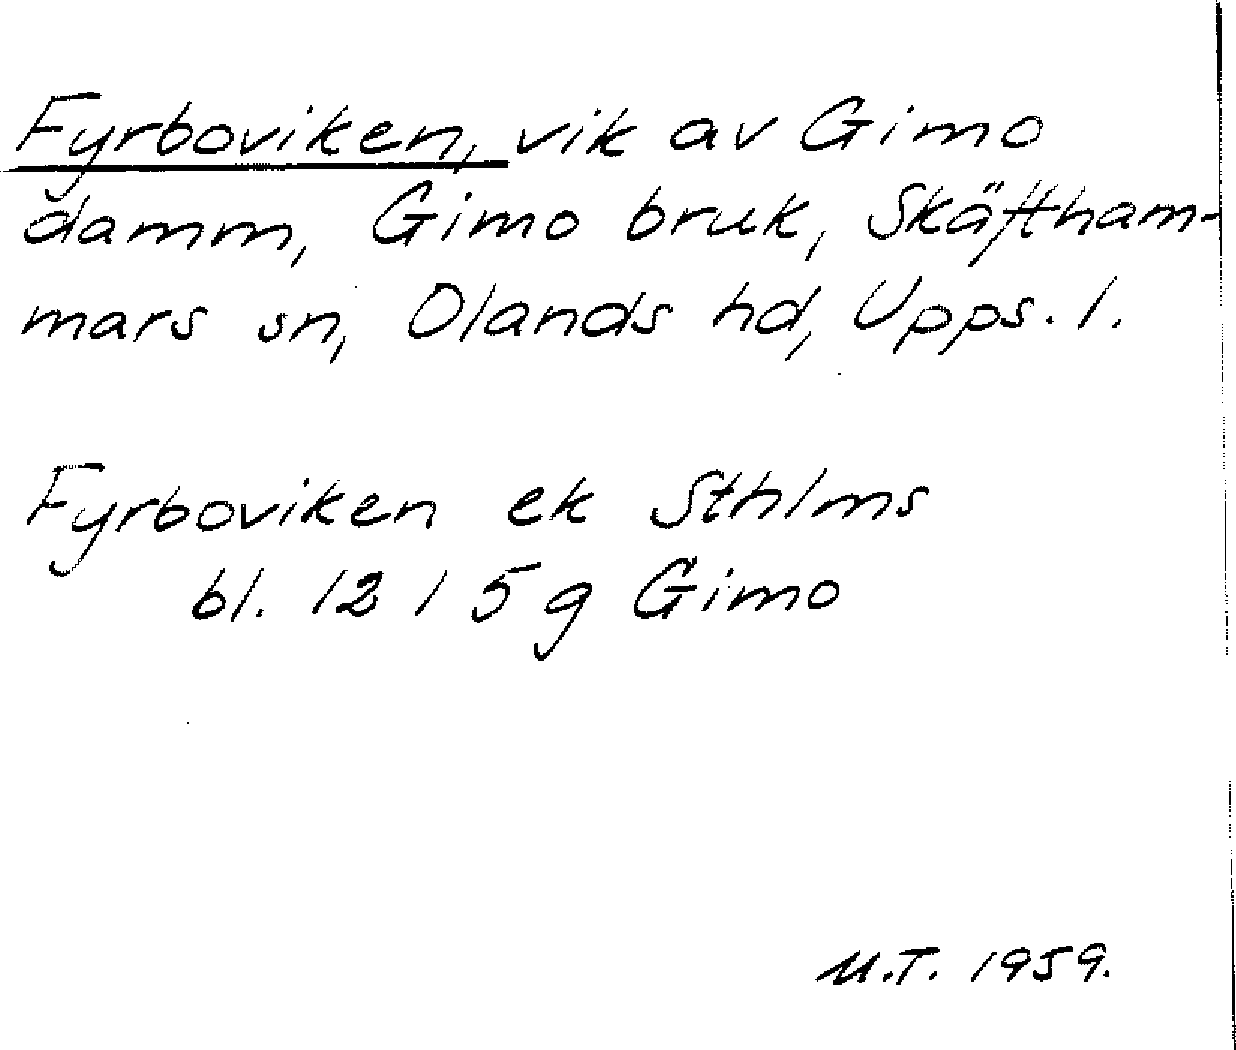 Fyrboviken, vik av Gimo
damm, Gimo bruk, Skäftham-
mars sn, Olands hd, Upps. l.
Fyrboviken ek Sthlms
bl. 12 I 5 g Gimo
M.T. 1959.